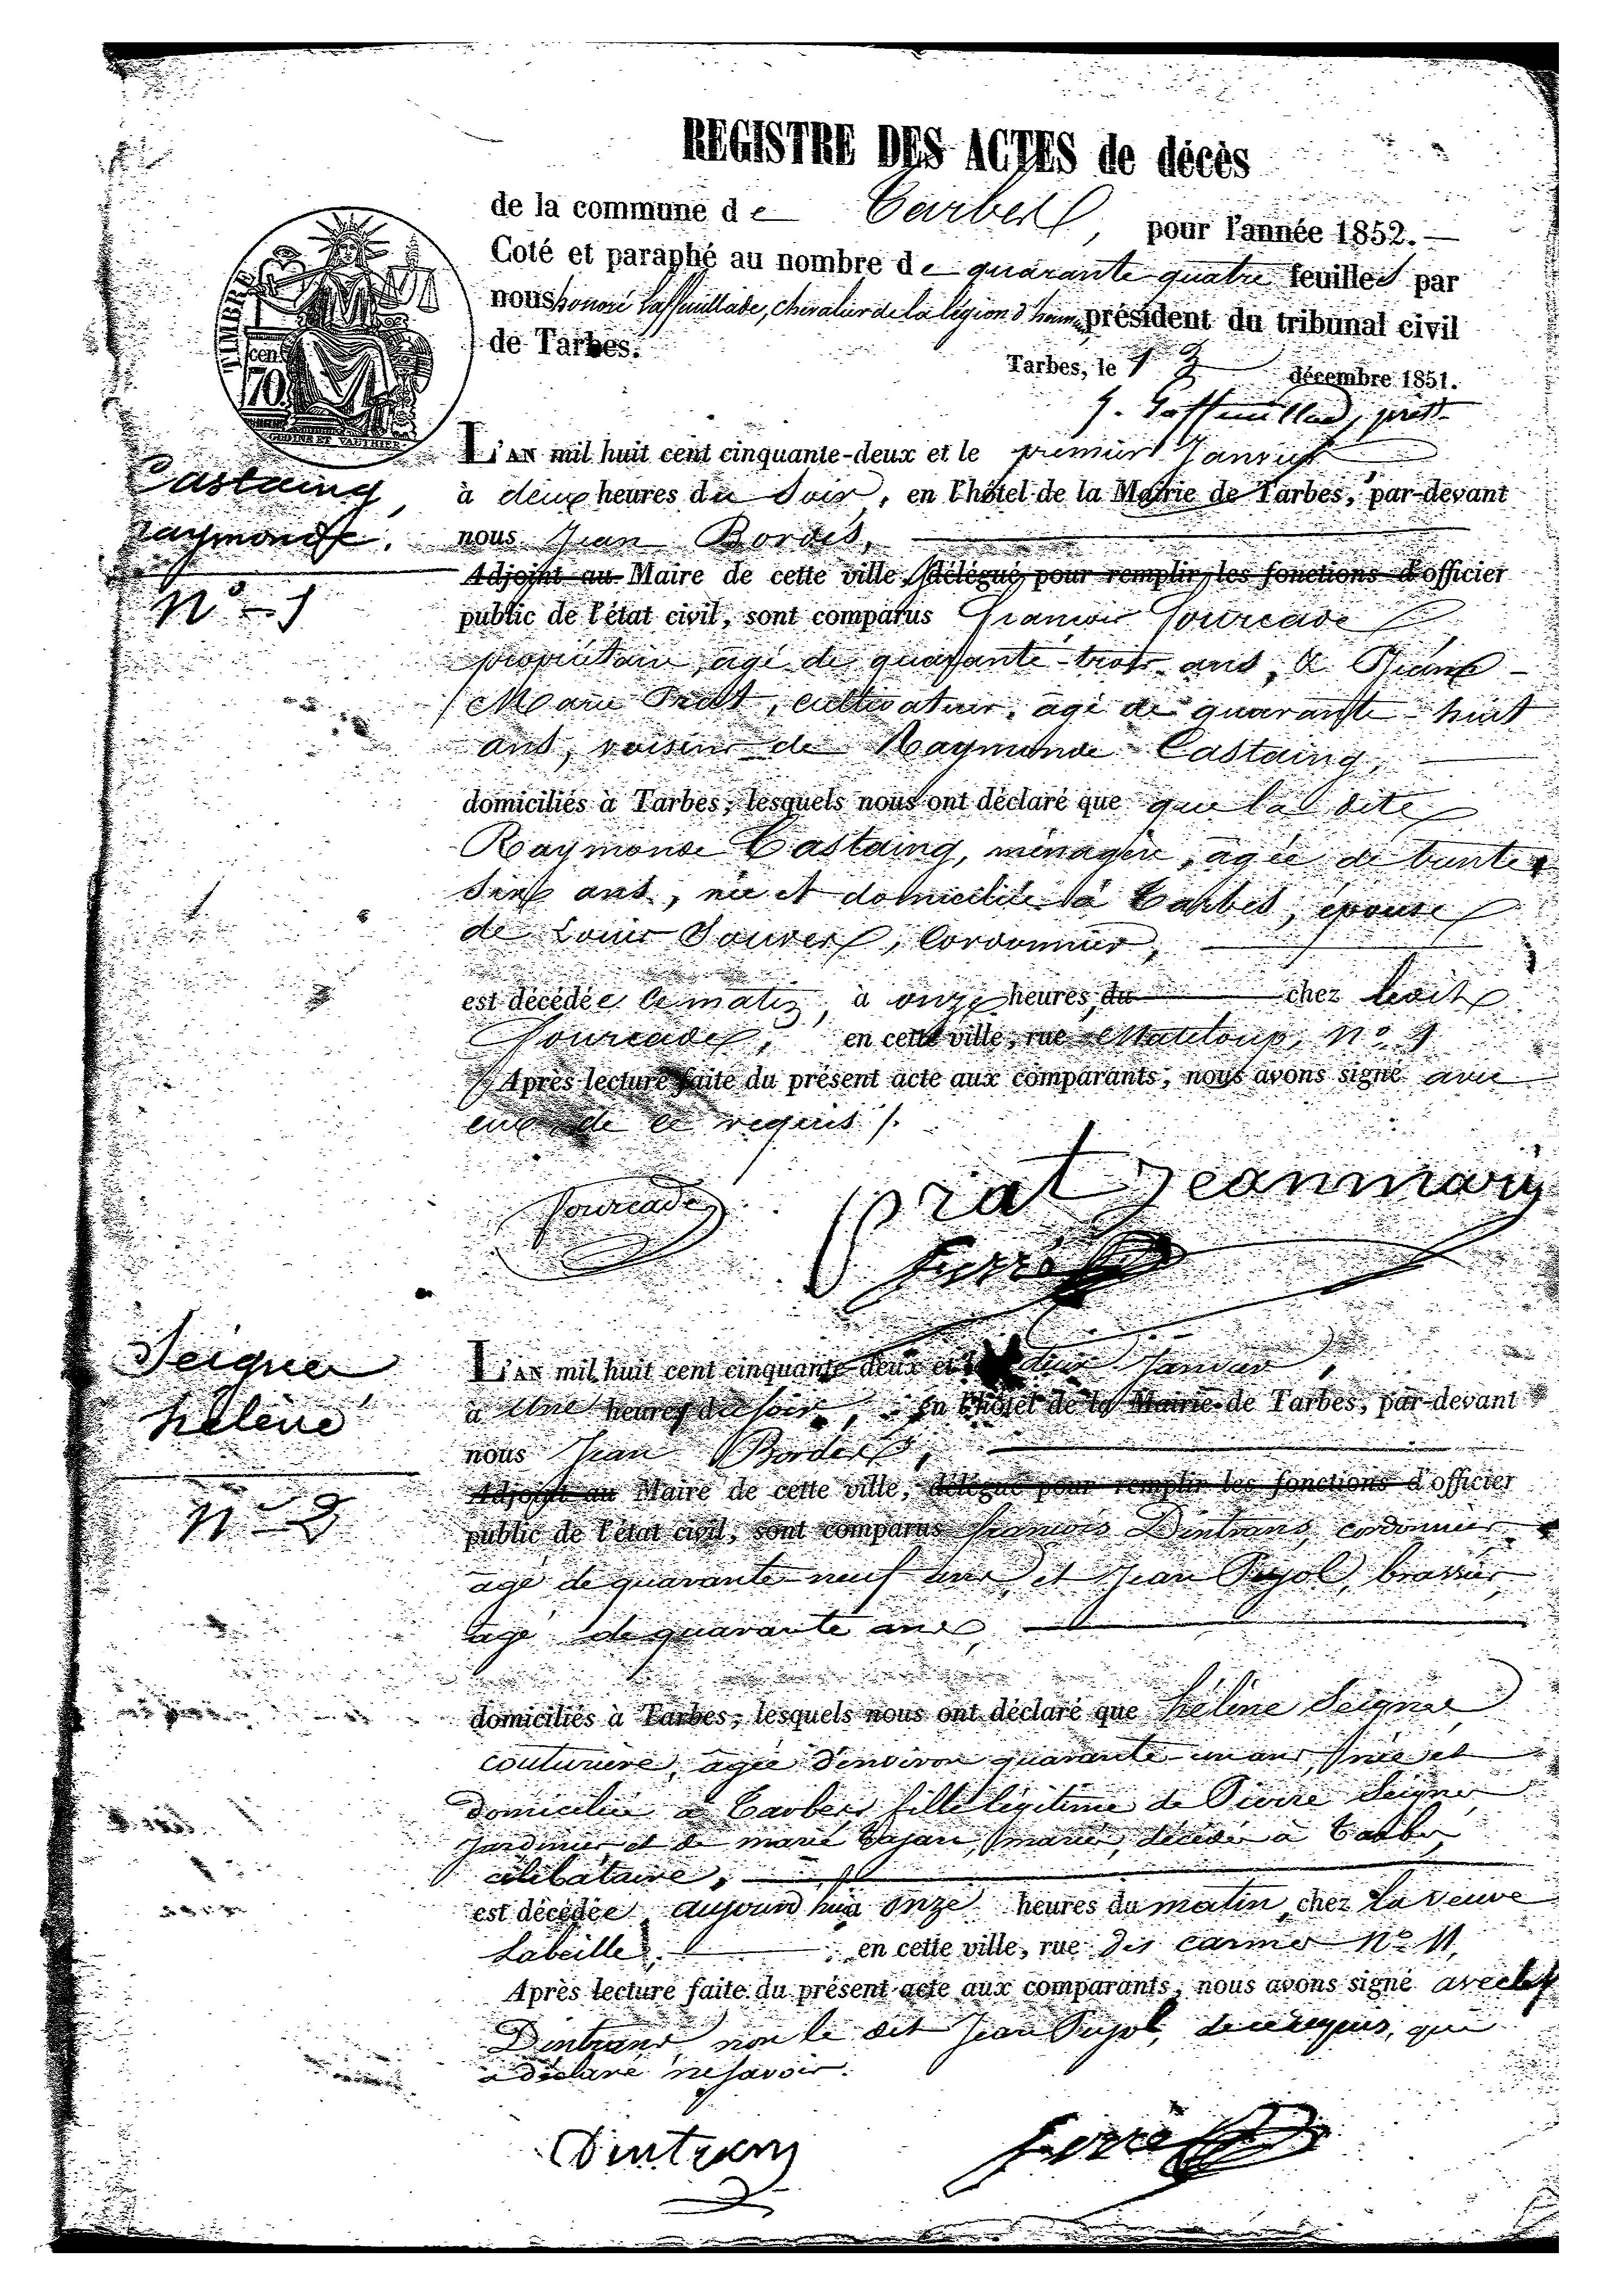 REGISTRE DES ACTES de décès
de la commune de Tarbes, pour l'année 1852.
Coté et paraphé au nombre de quarante quatre feuilles par
nous honoré Laffeuillade, chevalier de la légion d'honneur, président du tribunal civil
de Tarbes.
Tarbes, le 13 décembre 1851.
TIMBRE
70 cen.
Castaing
raymonde.
N° 1
L'AN mil huit cent cinquante-deux et le premier Janvier
à deux heures du Soir, en l'hôtel de la Mairie de Tarbes, par-devant
nous Jean Bordes,
Adjoint au Maire de cette ville, délégué pour remplir les fonctions d'officier
public de l'état civil, sont comparus François Fourcade,
propriétaire, agé de quarante-trois ans, & Jean
Marie Prat, cultivateur, agé de quarante-huit
ans, voisins de Raymonde Castaing,
domiciliés à Tarbes, lesquels nous ont déclaré que que la dite
Raymonde Castaing, ménagère, agée de trente
six ans, née et domiciliée à Tarbes, épouse
de Louis Cordonnier,
est décédée ce matin, à onze heures du chez le dit
Fourcade, en cette ville, rue Mateloup, N° 1
Après lecture faite du présent acte aux comparants, nous avons signé avec
eux de ce requis /.
Fourcade
prat Jeanmary
Ferré
Seigner
hélène
N° 2
L'AN mil huit cent cinquante-deux et le deux Janvier,
à une heures du soir, en l'hôtel de la Mairie de Tarbes, par-devant
nous Jean Bordes,
Adjoint au Maire de cette ville, délégué pour remplir les fonctions d'officier
public de l'état civil, sont comparus françois Dintrans, cordonnier
agé de quarante-neuf ans, et Jean Pujol, brassier,
agé de quarante ans,
domiciliés à Tarbes, lesquels nous ont déclaré que hélène Seigner
couturière, agée d'environ quarante-un ans, née et
domiciliée à Tarbes fille légitime de Pierre Seigner
jardinier et de marie mariés, décédés à Tarbes,
célibataire,
est décédée aujourd'hui à onze heures du matin, chez la veuve
Labeille, en cette ville, rue des carmes N° 11,
Après lecture faite du présent acte aux comparants, nous avons signé avec le
Dintrans non le dit Jean Pujol, de ce requis, qui
a déclaré ne savoir.
Dintrans
Ferré